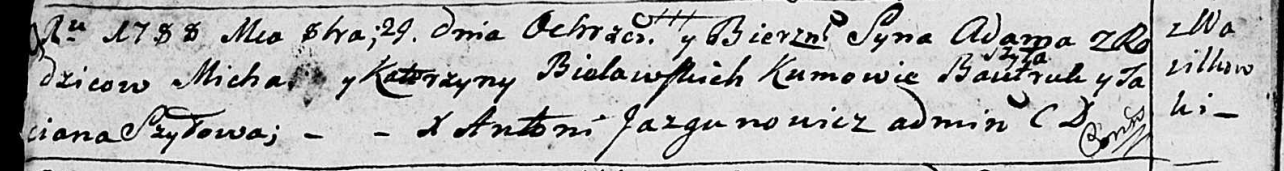 Ru 1788 Mca 8bra; 29. dnia Ochrzcił. y Bierzm. Syna Adama z Ro
dzicow Michała y Katarzyny Bielawskich Kumowie Bautruk Szyła y Ta
ciana Szyłowa; - - X Antoni Jazgunowicz admin C D
z Wa
silkow
ki -